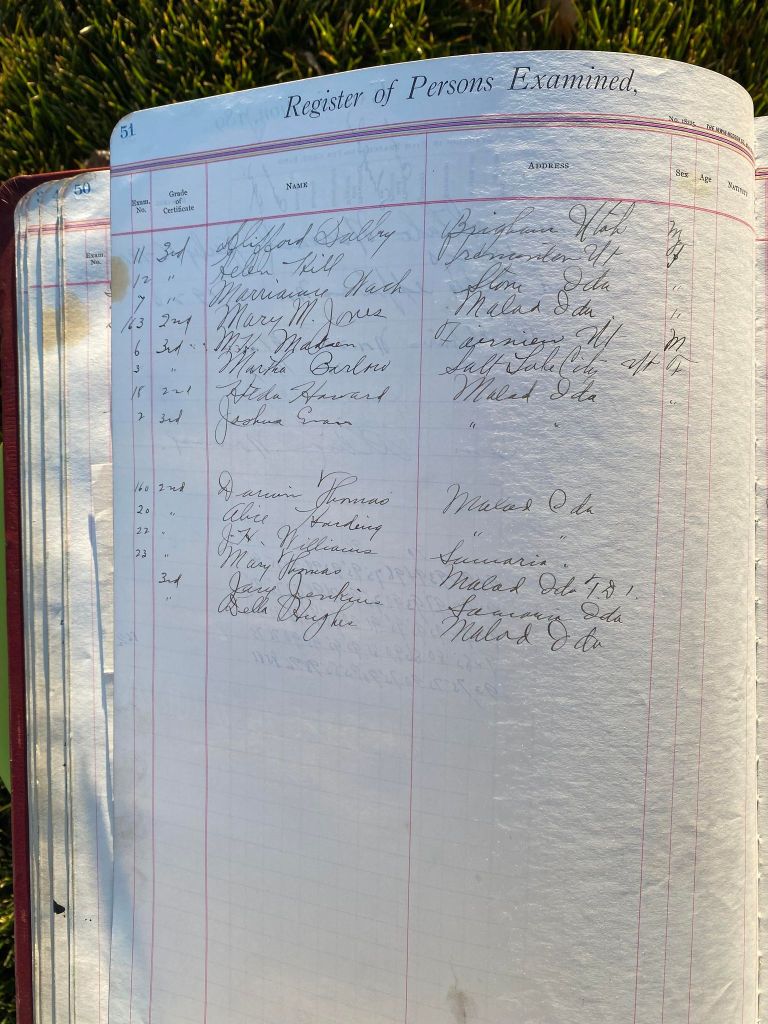 Register of Persons Examined,
51
50
Exam. No. Grade of Certificate NAME ADDRESS Sex Age
Exam. No.
11 3rd Clifford Brigham Utah M
12 " Helen Hill Tremonton Ut F
7 " Stone Ida "
163 2nd Mary M. Jones Malad Ida "
6 3rd M.H. Madsen Fairview Ut M
3 " Martha Barlow Salt Lake City Ut F
18 2nd Howard Malad Ida "
2 3rd Joshua Evans " "
160 2nd Darwin Thomas Malad Ida
20 " Alice Harding " "
22 " J.H. Williams Samaria "
23 " Mary Thomas Malad Ida
3rd Jary Jenkins Samaria Ida
" Della Hughes Malad Ida